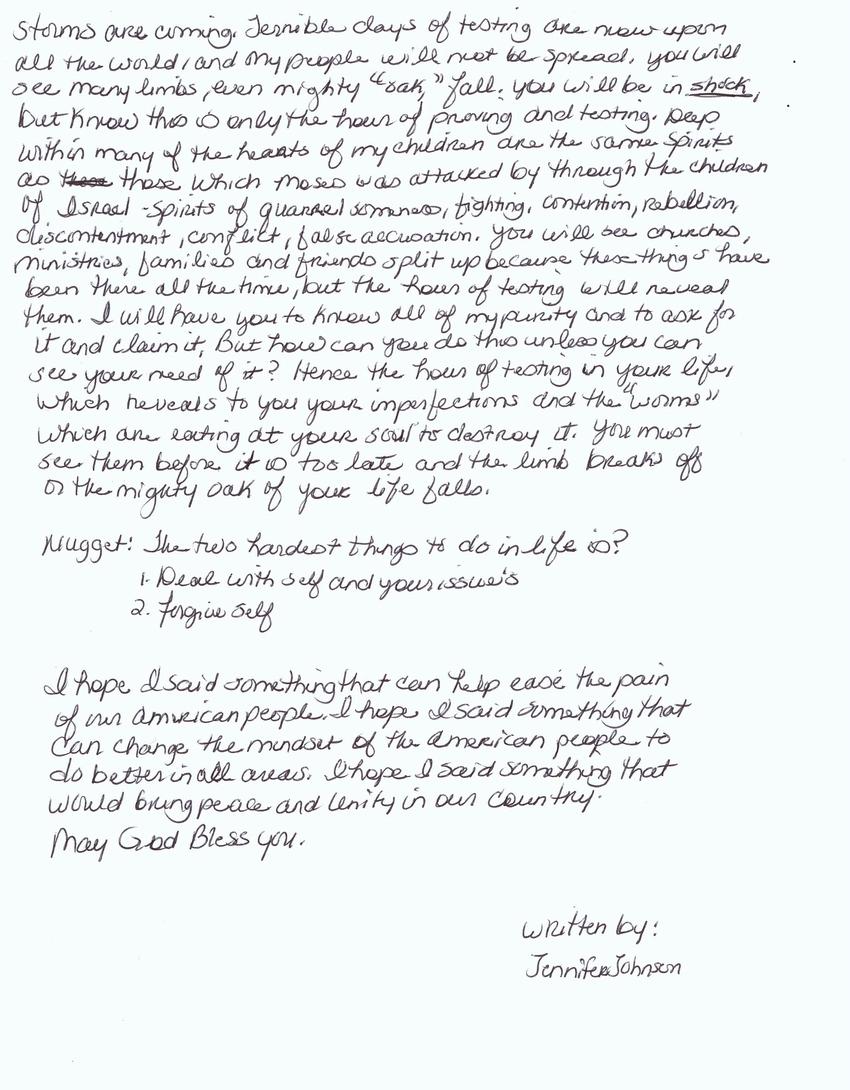 Storms are coming. Terrible days of testing are now upon
all the world, and my people will not be spread. you will
see many limbs, even mighty "oak," fall. you will be in shock,
but know this is only the hour of proving and testing. Deep
within many of the hearts of my children are the same spirits
as these those which moses was attacked by through the children
of Israel - spirits of quarrelsomeness, fighting, contention, rebellion,
discontentment, conflict, false accusation. you will see churches,
ministries, families and friends split up because these things have
been there all the time, but the hour of testing will reveal
them. I will have you to know all of my purity and to ask for
it and claim it, But how can you do this unless you can
see your need of it? Hence the hour of testing in your life,
which reveals to you your imperfections and the "worms"
which are eating at your soul to destroy it. you must
see them before it is too late and the limb breaks off
or the mighty oak of your life falls.
Nugget: The two hardest things to do in life is?
1. Deal with self and your issue's
2. Forgive self
I hope I said something that can help ease the pain
of our american people. I hope I said something that
can change the mindset of the american people to
do better in all areas. I hope I said something that
would bring peace and Unity in our country.
May God Bless you.
written by:
Jennifer Johnson